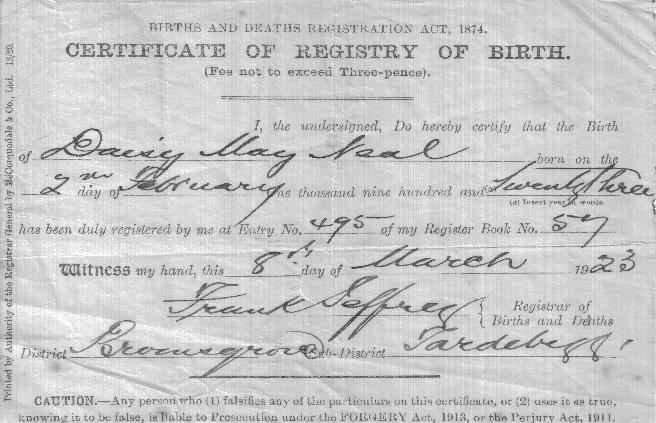 BIRTHS AND DEATHS REGISTRATION ACT, 1874.
CERTIFICATE OF REGISTRY OF BIRTH.
(Fee not to exceed Three-pence).
I, the undersigned, Do hereby certify that the Birth
of Daisy May Neal born on the
2nd day of February One thousand nine hundred and Twenty Three
(a) Insert year in words.
has been duly registered by me at Entry No. 495 of my Register Book No. 57
Witness my hand, this 8th day of March 1923
Frank Jeffrey { Registrar of
Births and Deaths
District Bromsgrove Sub-District Tardebigg
CAUTION.—Any person who (1) falsifies any of the particulars on this certificate, or (2) uses it as true,
knowing it to be false, is liable to Prosecution under the FORGERY Act, 1913, or the Perjury Act, 1911.
Printed by Authority of the Registrar General by McCorquodale & Co., Ltd. 12/20.